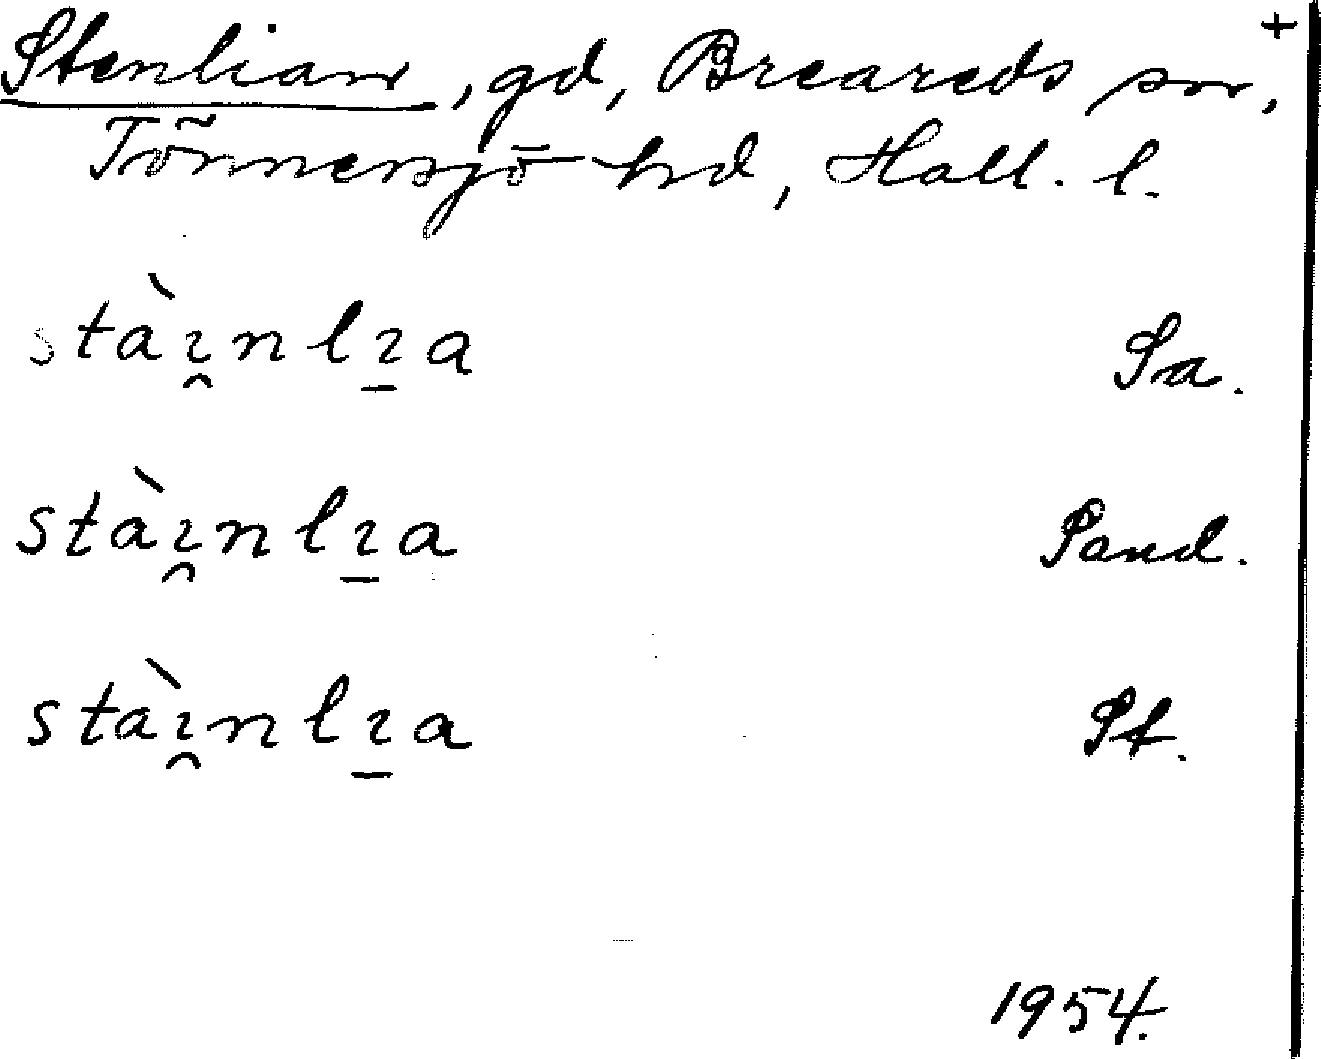 +
Stenlian, gd, Breareds sn,
Tönnersjö hd, Hall. l.
stàı̯nlı̱a Sa.
stàı̯nlı̱a Sand.
stàı̯nlı̱a St.
1954.